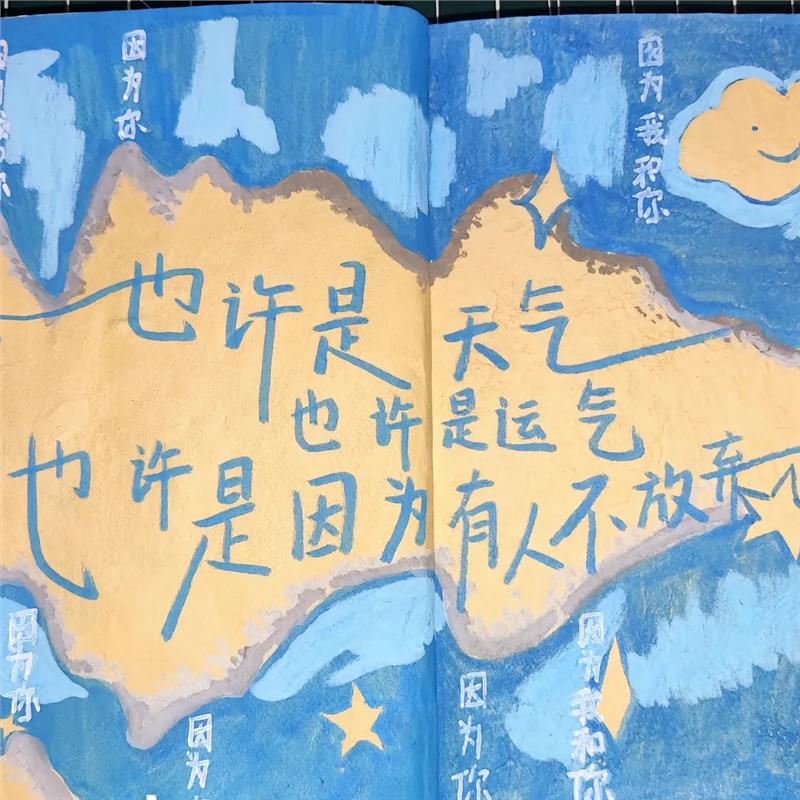 因为你
因为我和你
也许是天气
也许是运气
也许是因为有人不放弃
因为你
因为
因为你
因为我和你